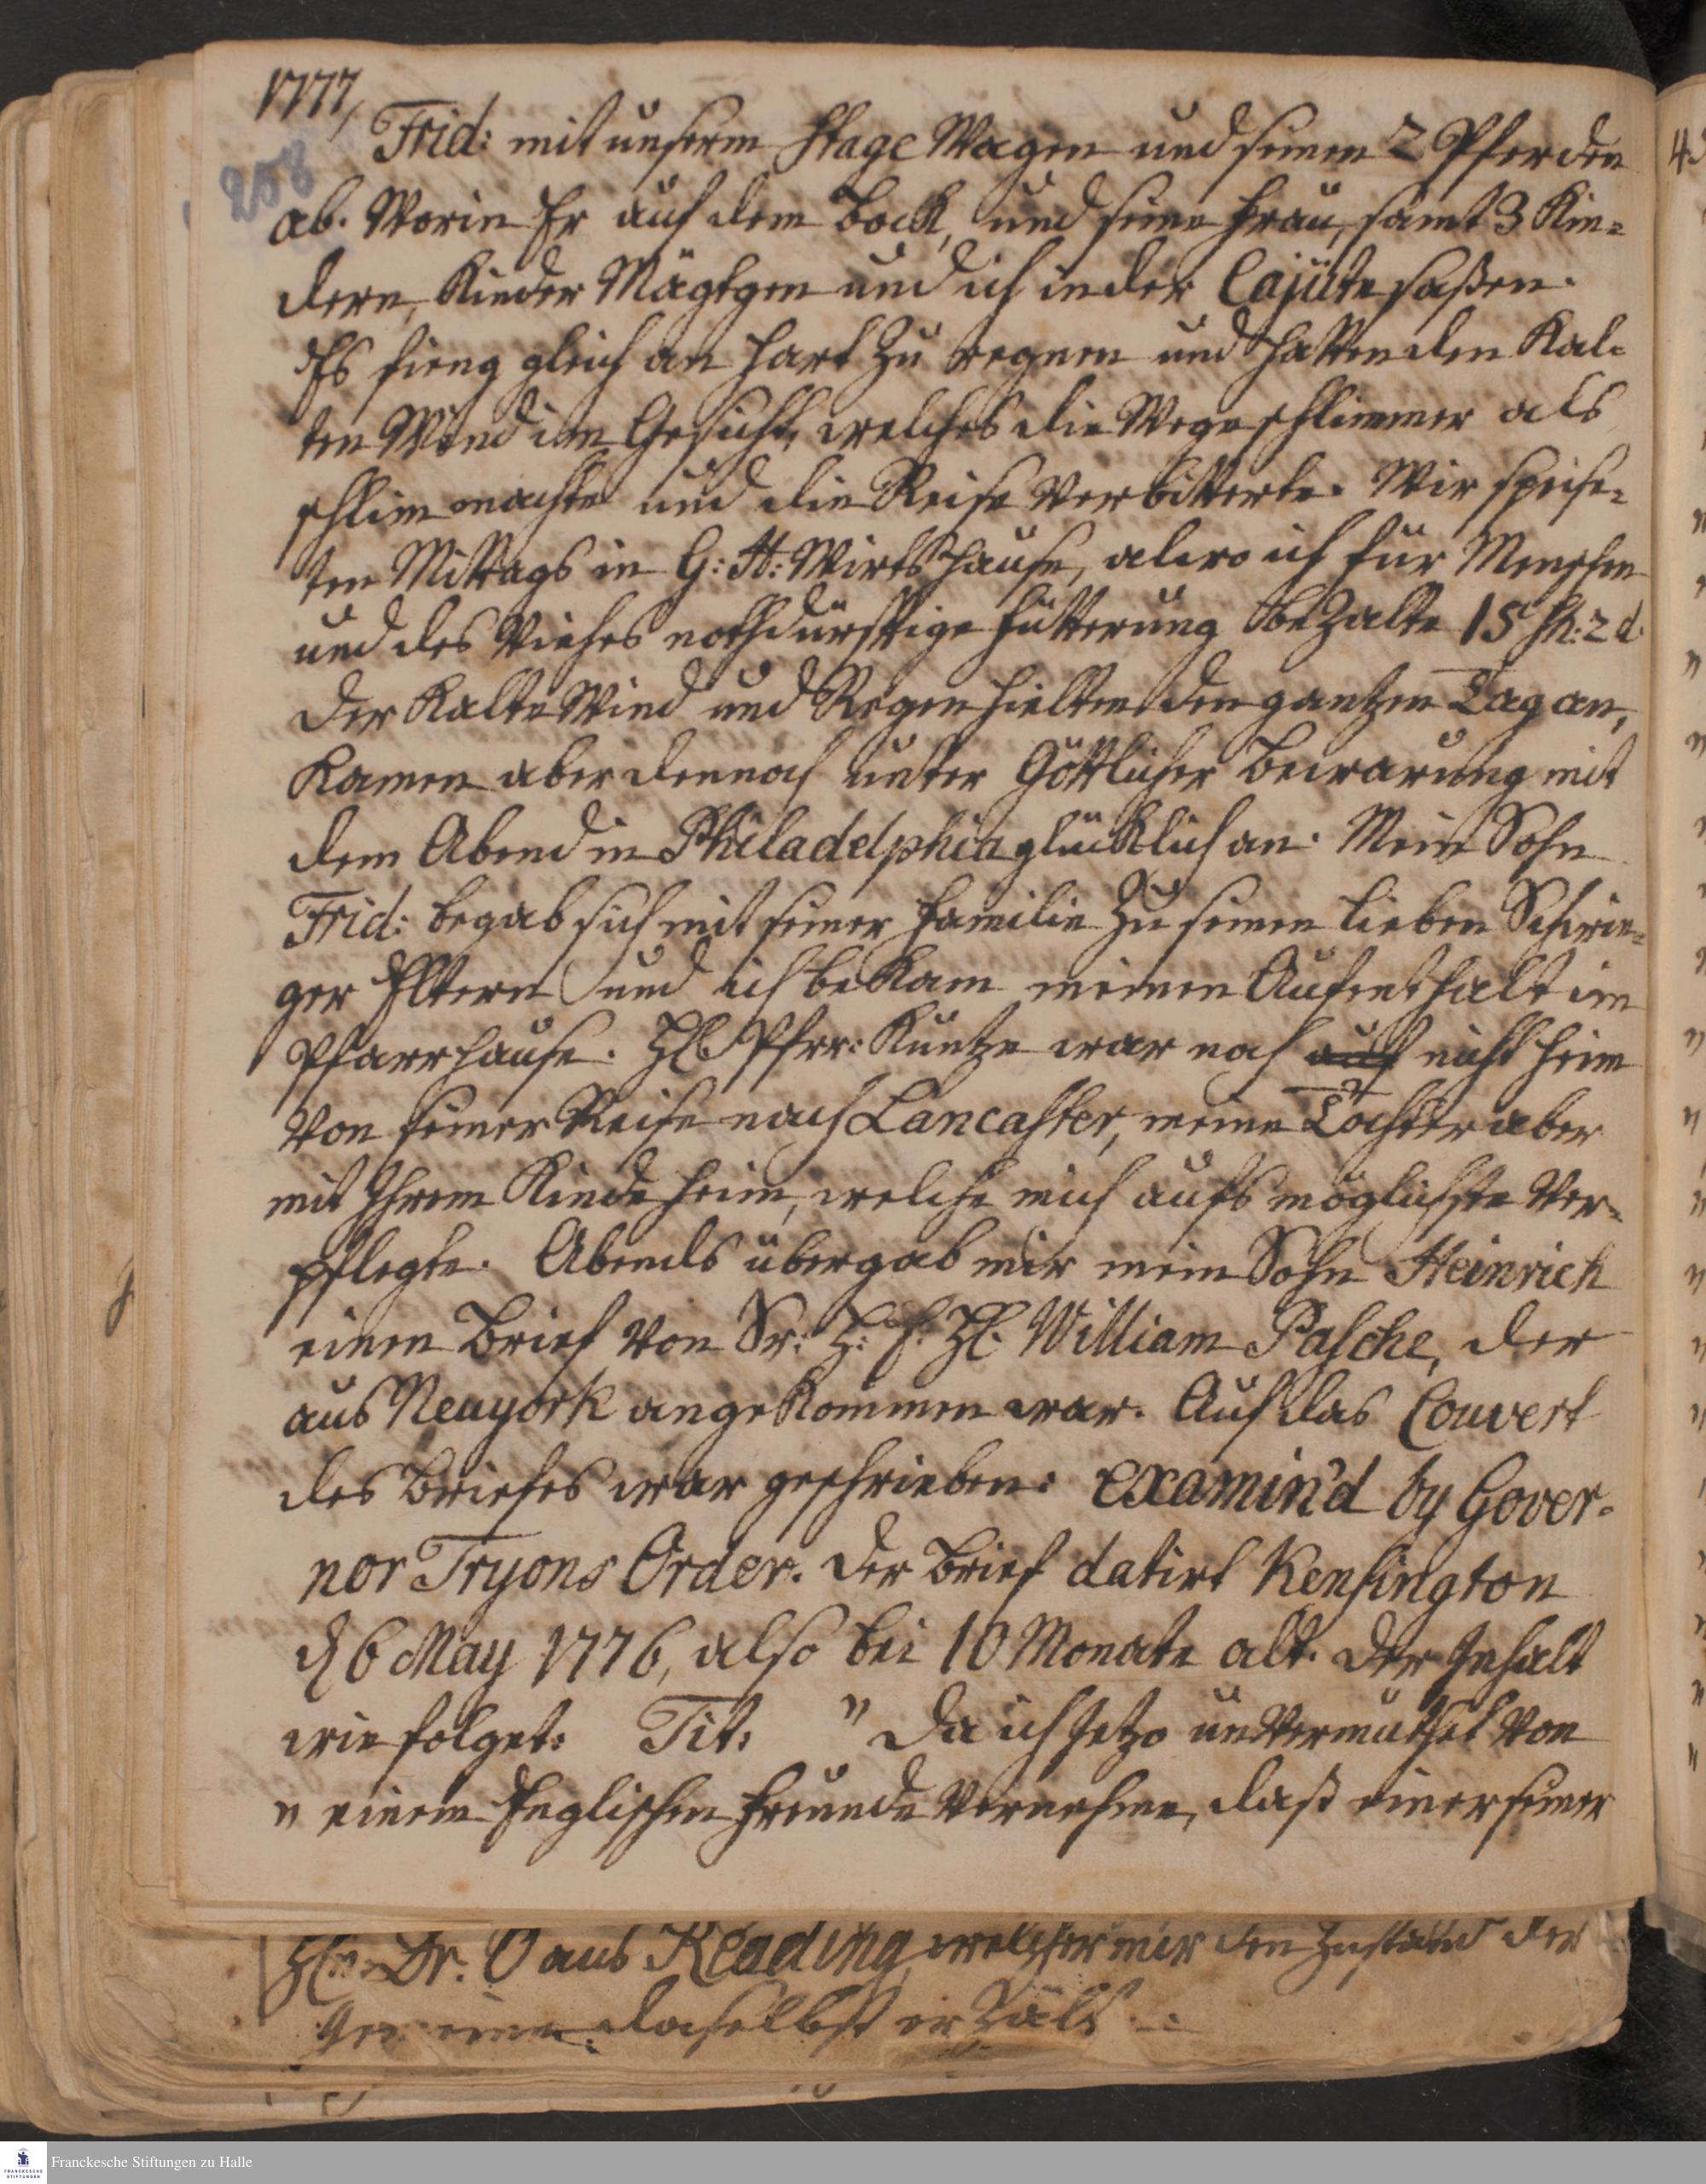 1777,
258
Frid: mit unserm Stage Wagen und seinen 2 Pferden
ab. Worin Er auf dem Bock, und seine Frau, samt 3 Kin=
dern, Kinder Mägtgen und ich in der Cajüte saßen.
Es fieng gleich an hart zu regnen und hatten den Kal=
ten Wind im Gesicht, welches die Wege schlimmer als
schlim machte und die Reise verbitterte. Wir speise=
ten Mittags in G: H: Wirtshause, alwo ich für Menschen
und des Viehes nothdürftige Fütterung bezalte 15 sh: 2 d.
Der Kalte Wind und Regen hielten den gantzen Tag an,
Kamen aber dennoch unter Göttlicher Bewarung mit
dem Abend in Philadelphia glücklich an. Mein Sohn
Frid: begab sich mit seiner Familie zu seinen lieben Schwie=
ger Eltern und ich bekam meinen Aufenthalt im
Pfarrhause. H. Pfrr: Kuntze war noch auch nicht heim
von seiner Reise nach Lancaster, meine Tochter aber
mit Ihrem Kinde heim, welche mich aufs möglichste ver=
pflegte. Abends übergab mir mein Sohn Heinrich
einen Brief von Sr: H: H. William Pasche, der
aus Neuyork angekommen war. Auf das Couvert
des Briefes war geschrieben: examin'd by Gover=
nor Tryons Order. Der Brief datirt Kensington
d 6 May 1776, also bei 10 Monate alt. Der Inhalt
wie folget: Tit: " Da ich jetzo unvermuthet von
" einem Englischen Freunde vernehme, daß einer seiner
Dr. O aus Reading welcher mir den Zustand der
daselbst erzält
Franckesche Stiftungen zu Halle
FRANCKESCHE
STIFTUNGEN